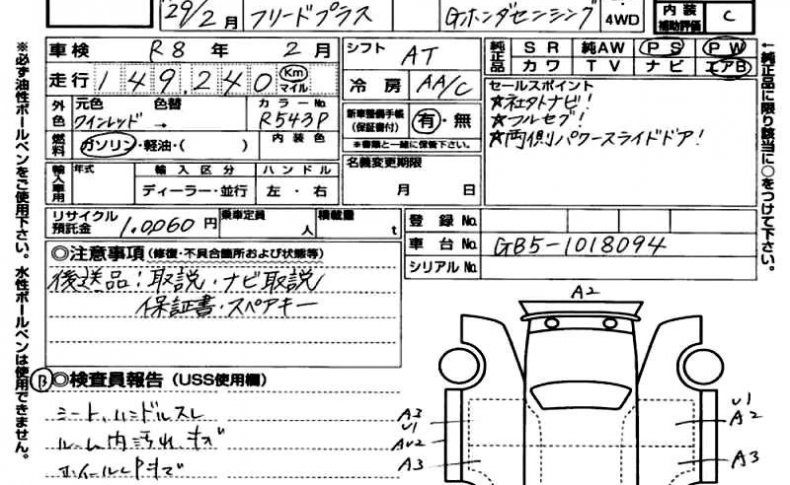 29/2月 フリードプラス Gホンダセンシング 4WD
内装 補助評価 C
車検 R8年 2月
シフト AT
純正品 SR 純AW PS PW
カワ TV ナビ エアB
走行 149,240 Km マイル
冷房 AA/C
セールスポイント
★社外ナビ!
★フルセグ!
★両側パワースライドドア!
外色 元色 色替 カラーNo.
ワインレッド → R543P
新車整備手帳 (保証書付) 有・無
※書類と一緒に保管下さい。
燃料 ガソリン・軽油・( ) 内装色
名義変更期限
月 日
輸入車用 年式 輸入区分 ハンドル
ディーラー・並行 左・右
リサイクル預託金 1.0060円 乗車定員 人 積載量 t
登録No.
車台No. GB5-1018094
シリアルNo.
◎注意事項 (修復・不具合箇所および状態等)
後送品:取説・ナビ取説
保証書・スペアキー
B ◎検査員報告 (USS使用欄)
シート、ハンドルスレ
ルーム内汚れ キズ
ホイールLPキズ
A2
A3 U1
AU2
A3
U1
A2
A3
※必ず油性ボールペンをご使用下さい。水性ボールペンは使用できません。
←純正品に限り該当に○をつけて下さい。